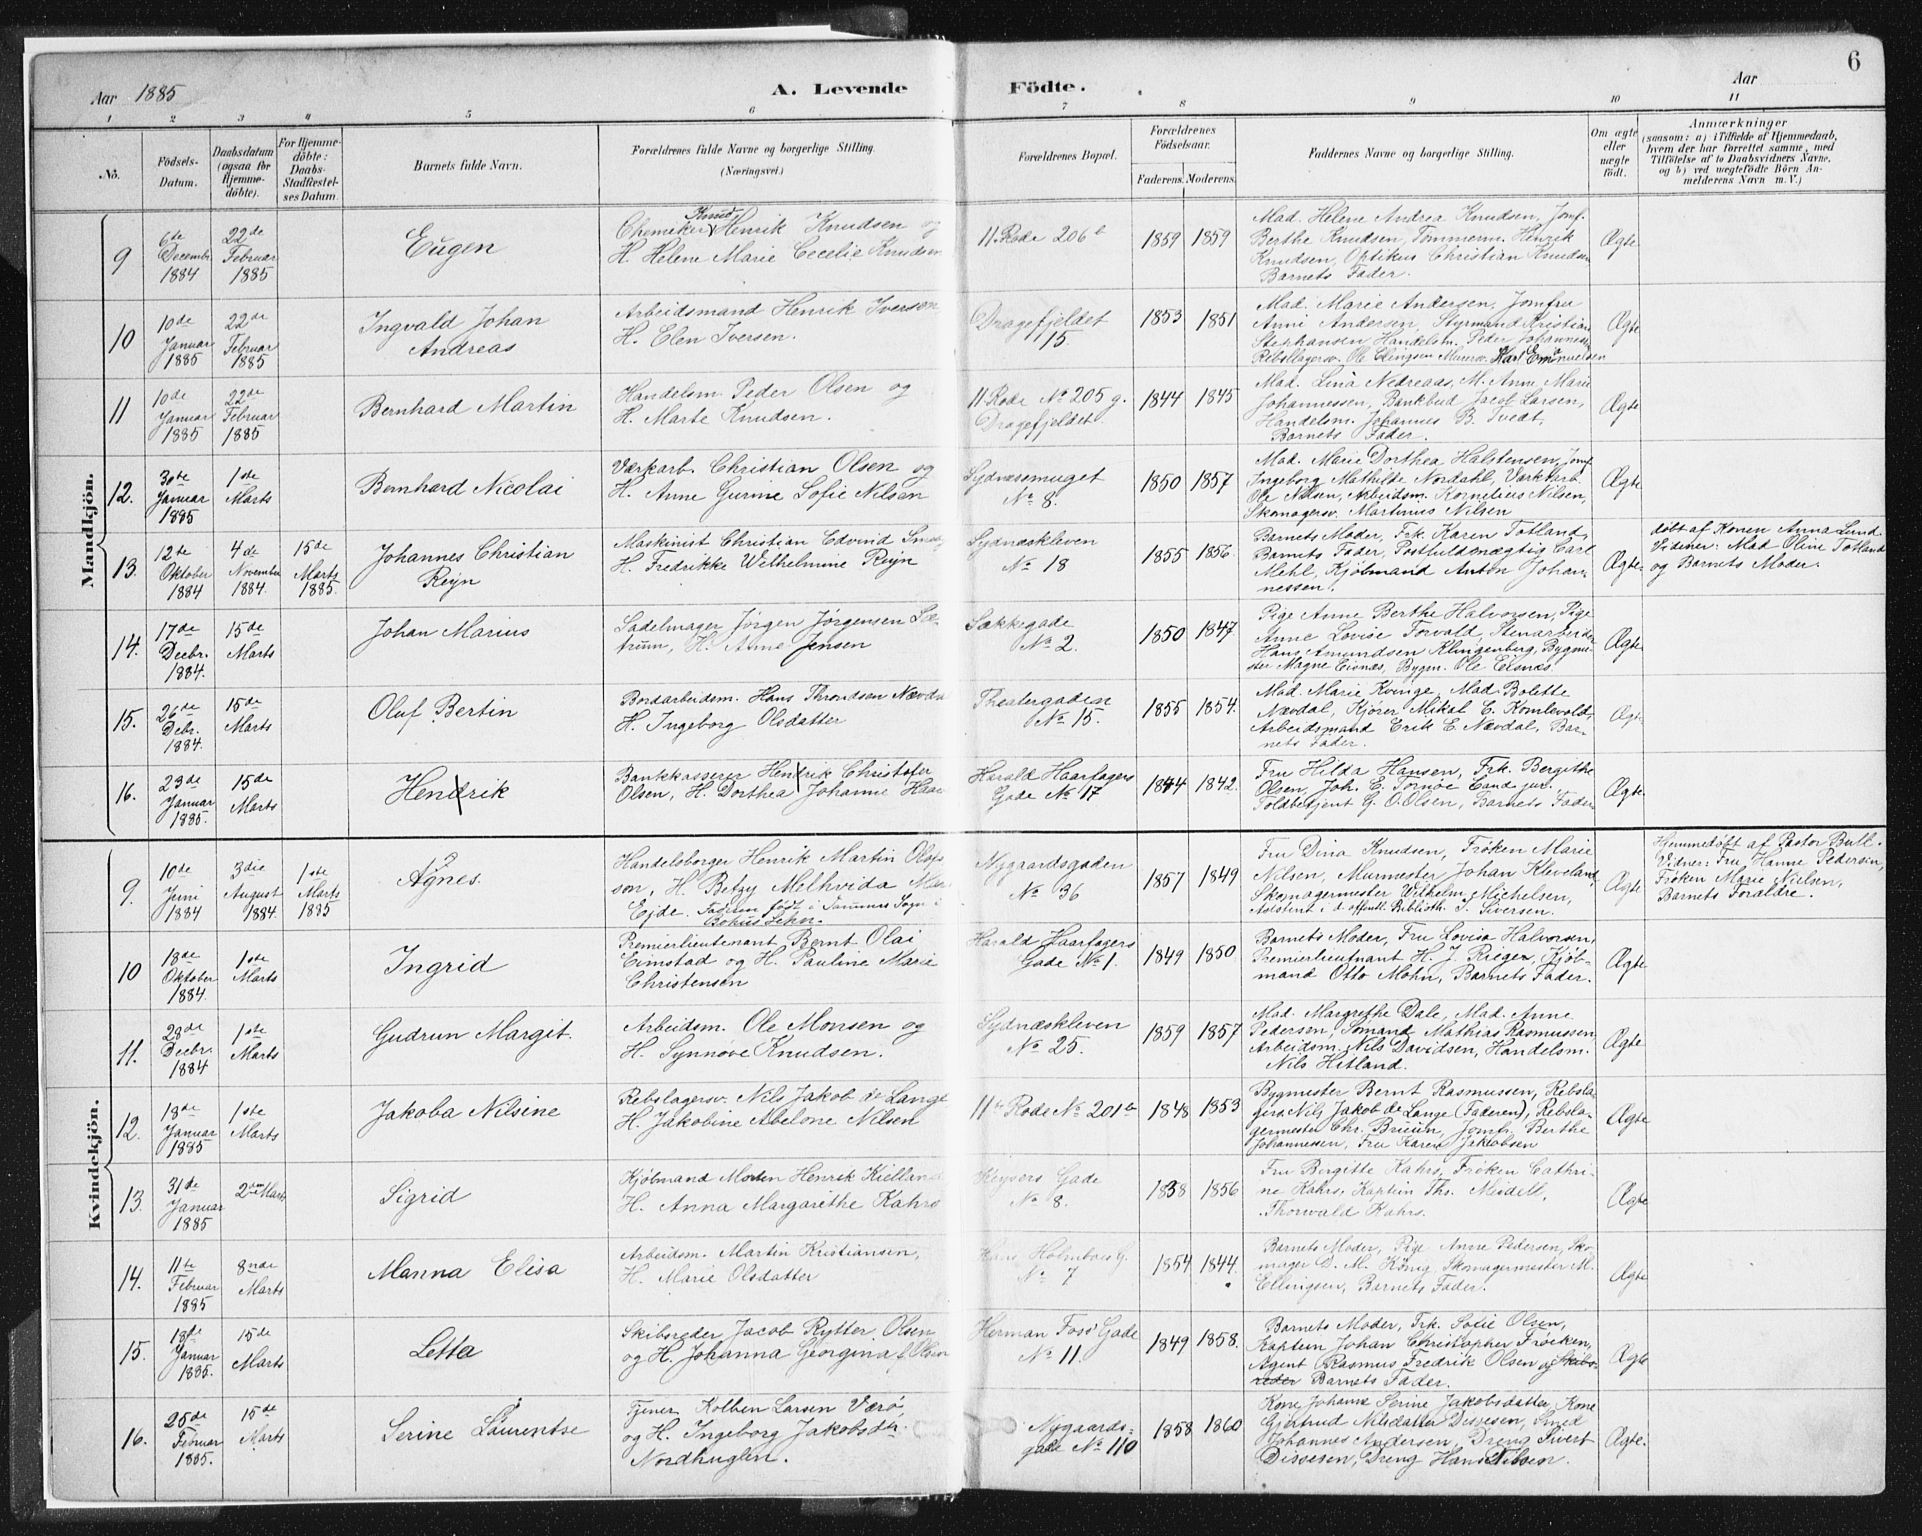 6
Aar 1885 A. Levende Födte. Aar
1 2 3 4 5 6 7 8 9 10 11
No. Födsels-Datum. Daabsdatum (ogsaa for Hjemmedöbte). For Hjemmedöbte: Daabs-Stadfestelses Datum. Barnets fulde Navn. Forældrenes fulde Navne og borgerlige Stilling. (Næringsvei.) Forældrenes Bopæl. Forældrenes Födselsaar. Faderens. Moderens. Faddernes Navne og borgerlige Stilling. Om ægte eller uægte födt. Anmærkninger (saasom: a) i Tilfælde af Hjemmedaab, hvem der har forrettet samme, med Tilföielse af to Daabsvidners Navne, og b) ved uægtefödte Börn Anmelderens Navn m. V.)
Mandkjön.
9 6te Decembr 1884 22de Februar 1885 Eugen
Chemiker Knud Henrik Knudsen og
H. Helene Marie Cecelie Knudsen
11. Rode 206 1859 1859
Mad. Helene Andrea Knudsen, Jomf.
Berthe Knudsen, Tømmerm. Henrik
Knudsen, Optikus Christian Knudsen
Barnets Fader.
Ægte
10 10de Januar 1885 22de Februar 1885 Ingvald Johan
Andreas
Arbeidsmand Henrik Iversen
H. Elen Iversen.
Dragefjeldet
15 1853 1851
Mad. Marie Andersen, Jomfru
Anne Andersen, Styrmand Kristian
Stephansen, Handelsm. Peder Johannessen
Rebslagersv. Ole Ellingsen Murersv. Karl Emanuelsen
Ægte
11 10de Januar 1885 22de Februar 1885 Bernhard Martin
Handelsm. Peder Olsen og
H. Marte Knudsen.
11 Rode No 205 g.
Dragefjeldet 1844 1845
Mad. Lina Nedreaas, M. Anne Marie
Johannessen, Bankbud Jacob Larsen,
Handelsm. Johannes B. Tvedt,
Barnets Fader.
Ægte
12. 30te Januar 1885 1ste Marts Bernhard Nicolai
Værkarb. Christian Olsen og
H. Anne Gurine Sofie Nilsen
Sydnæssmuget
No 8. 1850 1857
Mad. Marie Dorthea Halstensen, Jomf.
Ingeborg Mathilde Nordahl, Værkarb.
Ole Nilsen, Arbeidsm. Kornelius Nilsen,
Skomagersv. Martinus Nilsen
Ægte
13. 12te Oktober 1884 4de November 1884. 15de Marts 1885. Johannes Christian
Reyn
Maskinist Christian Edvind
H. Fredrikke Wilhelmine Reyn
Sydnæskleven
No 18 1855 1856.
Barnets Moder, Frk. Karen Totland,
Barnets Fader, Postfuldmægtig Carl
Mehl, Kjøbmand Anton Johan-
nessen.
Ægte
døbt af Konen Anna Lund.
Vidner: Mad Oline Totland
og Barnets Moder.
14. 17de Decbr. 1884. 15de Marts Johan Marius
Sadelmager Jørgen Jørgensen Sæ-
truun, H. Anne Jensen
Sækkegade
No 2. 1850 1847.
Pige Anne Berthe Halvorsen, Pige
Anne Lovise Torvald, Stenarbeider
Hans Amundsen Klingenberg, Bygme-
ster Magne Eisnæs, Bygm. Ole Eisnæs.
Ægte
15. 26de Debr. 1884. 15de Marts Oluf Bertin
Bordarbeidsm. Hans Throndsen Nævdal
H. Ingeborg Olsdatter
Theatergaden
No 15. 1855 1854.
Mad. Marie Kvinge, Mad. Bolette
Nævdal, Kjører Mikal E. Kvalevold,
Arbeidsmand Erik E. Nævdal, Bar-
nets Fader.
Ægte
16. 23de Januar 1885. 15de Marts Hendrik
Bankkasserer Hendrik Christofer
Olsen, H. Dorthea Johanne
Harald Haarfagers
Gade No 17 1844 1842.
Fru Hilda Hansen, Frk. Bergithe
Olsen, Joh. E. Tornøe Cand jur.
Toldbetjent G. O. Olsen, Barnets Fader
Ægte
Kvindekjön.
9. 10de Juni 1884 3die August 1884. 1ste Marts 1885 Agnes.
Handelsborger Henrik Martin Olofs
son, H. Betzy Methvida
Ejde. Faderen født i Tanums Sogn i
Bohus Lehn.
Nygaardsgaden
No 36 1857 1849
Fru Dina Knudsen, Frøken Marie
Nilsen, Murmester Johan Kleveland,
Skomagermester Wilhelm Michelsen,
Assistent i d. offentl. Biblioth. J. Siversen.
Ægte
Hjemmedøbt af Pastor Bull.
Vidner: Fru Hanne Pedersen,
Frøken Marie Nielsen,
Barnets Forældre.
10 18de Oktober 1884. 1ste Marts Ingrid
Premierlieutenant Bernt Olai
Eimstad og H. Pauline Marie
Christensen
Harald Haarfagers
Gade No 1. 1849 1850.
Barnets Moder, Fru Lovisa Halvorsen,
Premierlieutnant H. J. Rieger, Kjøb-
mand Otto Mohn, Barnets Fader.
Ægte
11. 28de Decbr. 1884 1ste Marts Gudrun Margit.
Arbeidsm. Ole Monsen og
H. Synnøve Knudsen.
Sydnæskleven
No 25. 1859 1857
Mad. Margrethe Dale, Mad. Anne
Pedersen, Sømand Mathias Rasmussen
Arbeidsm. Nils Davidsen, Handelsm.
Nils Hitland.
Ægte
12. 18de Januar 1885 1ste Marts Jakoba Nilsine
Rebslagersv. Nils Jakob de Lange
H. Jakobine Abelone Nilsen
11te Rode No 201 1848 1853
Bygmester Bernt Rasmussen, Rebsla-
gersv. Nils Jakob de Lange (Faderen), Rebsla-
germester Chr. Bruun, Jomfr. Berthe
Johannessen, Fru Karen Jakobsen
Ægte
13. 31de Januar 1885 2den Marts Sigrid
Kjøbmand Morten Henrik Kielland
H. Anna Margarethe Kahrs
Keysers Gade
No 8. 1838 1856
Fru Bergitte Kahrs, Frøken Cathri-
ne Kahrs, Kaptein Th. Meidell,
Thorwald Kahrs.
Ægte
14. 11te Februar 1885 8nde Marts Manna Elisa
Arbeidsm. Martin Kristiansen,
H. Marie Olsdatter
Hans Holmboes G.
No 7 1854 1844.
Barnets Moder, Pige Anne Pedersen, Sko-
mager D. M. König, Skomagermester M.
Ellingsen, Barnets Fader.
Ægte
15. 18de Januar 1885. 15de Marts Letta
Skibsreder Jacob Rytter Olsen
og H. Johanna Georgina f. Olsen
Herman Foss' Gade
No 11. 1849 1858.
Barnets Moder, Frk. Sofie Olsen,
Kaptein Johan Christopher Frøcken,
Agent Rasmus Fredrik Olsen og Skibs-
reder Barnets Fader.
Ægte
16. 25de Februar 1885. 15de Marts Serine Laurentse
Tjener Kolben Larsen Værø,
og H. Ingeborg Jakobsdtr.
Nordhuglen.
Nygaards-
gade No 110 1858 1860
Kone Johanne Serine Jakobsdatter, Kone
Gjertrud Nilsdatter Dissesen, Smed
Johannes Andersen, Dreng Sivert
Dissesen, Dreng Hans Nilsen.
Ægte.